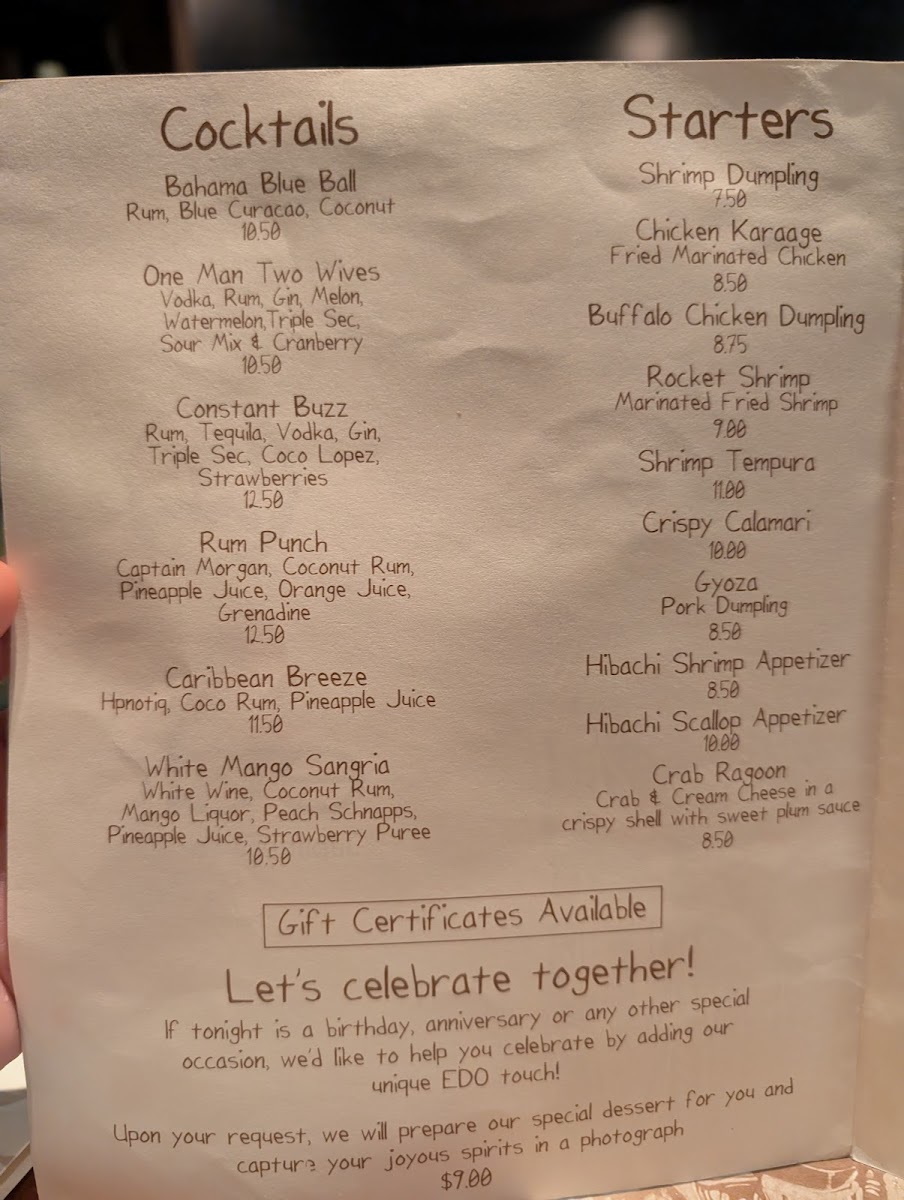 Cocktails
Bahama Blue Ball
Rum, Blue Curacao, Coconut
10.50
One Man Two Wives
Vodka, Rum, Gin, Melon,
Watermelon,Triple Sec,
Sour Mix & Cranberry
10.50
Constant Buzz
Rum, Tequila, Vodka, Gin,
Triple Sec, Coco Lopez,
Strawberries
12.50
Rum Punch
Captain Morgan, Coconut Rum,
Pineapple Juice, Orange Juice,
Grenadine
12.50
Caribbean Breeze
Hpnotiq, Coco Rum, Pineapple Juice
11.50
White Mango Sangria
White Wine, Coconut Rum,
Mango Liquor, Peach Schnapps,
Pineapple Juice, Strawberry Puree
10.50
Starters
Shrimp Dumpling
7.50
Chicken Karaage
Fried Marinated Chicken
8.50
Buffalo Chicken Dumpling
8.75
Rocket Shrimp
Marinated Fried Shrimp
9.00
Shrimp Tempura
11.00
Crispy Calamari
10.00
Gyoza
Pork Dumpling
8.50
Hibachi Shrimp Appetizer
8.50
Hibachi Scallop Appetizer
10.00
Crab Ragoon
Crab & Cream Cheese in a
crispy shell with sweet plum sauce
8.50
Gift Certificates Available
Let's celebrate together!
If tonight is a birthday, anniversary or any other special
occasion, we'd like to help you celebrate by adding our
unique EDO touch!
Upon your request, we will prepare our special dessert for you and
capture your joyous spirits in a photograph
$9.00